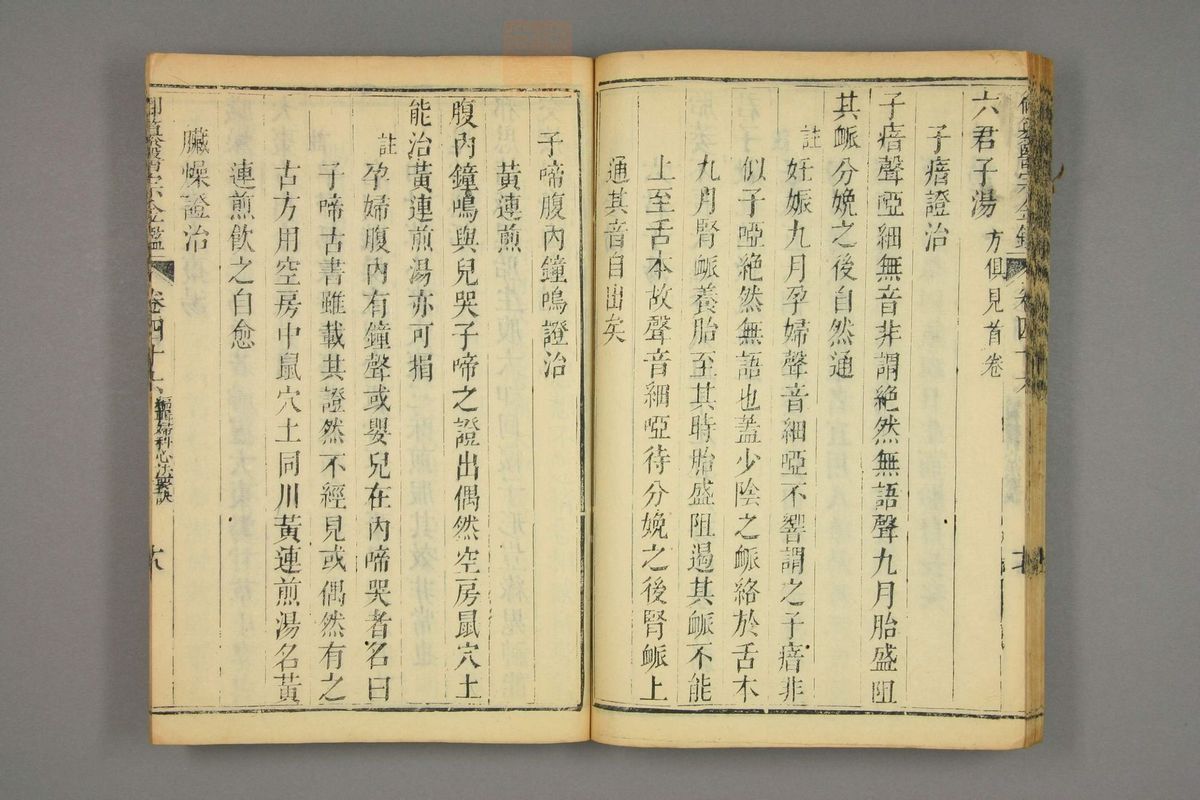 六君子湯 方俱見首卷
子瘖證治
子瘖聲啞細無音非謂絶然無語聲九月胎盛阻
其衇分娩之後自然通
註 妊娠九月孕婦聲音細啞不響謂之子瘖非
似子啞絶然無語也蓋少陰之衇絡於舌本
九月腎衇養胎至其時胎盛阻遏其衇不能
上至舌本故聲音細啞待分娩之後腎衇上
通其音自出矣
子啼腹內鐘鳴證治
黃連煎
腹內鐘鳴與兒哭子啼之證出偶然空房鼠穴土
能治黃連煎湯亦可捐
註 孕婦腹內有鐘聲或嬰兒在內啼哭者名曰
子啼古書雖載其證然不經見或偶然有之
古方用空房中鼠穴土同川黃連煎湯名黃
連煎飲之自愈
臟燥證治
御纂醫宗金鑑 卷四十六 編輯婦科心法要訣